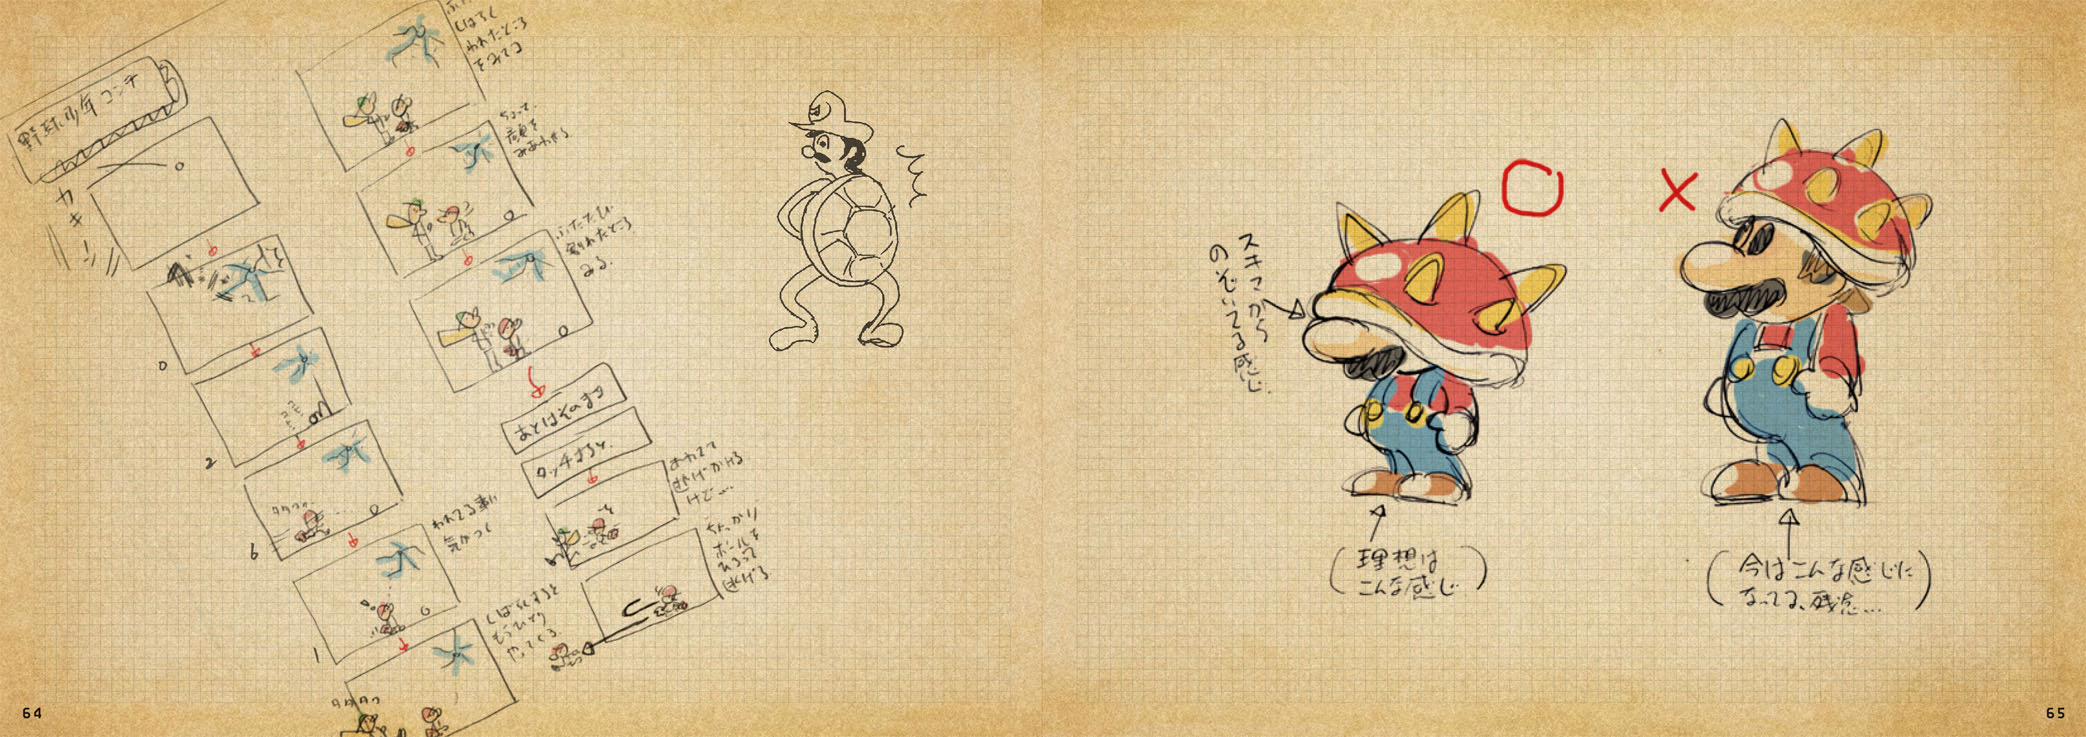 野球少年コンテ
カキーン
しばらく
われたところ
をみてる
顔を
みあわせる
ふたたび
割れたところ
みる
われてる事に
気がつく
しばらくすると
もうひとり
やってくる
タタタッ
タタタッ
0
2
6
1
あとはそのまま
タッチすると
あわてて
逃げかける
けど…
ちゃっかり
ボールを
ひろって
逃げる
64
スキマから
のぞいてる感じ
(理想は
こんな感じ)
(今はこんな感じに
なってる、残念…)
65